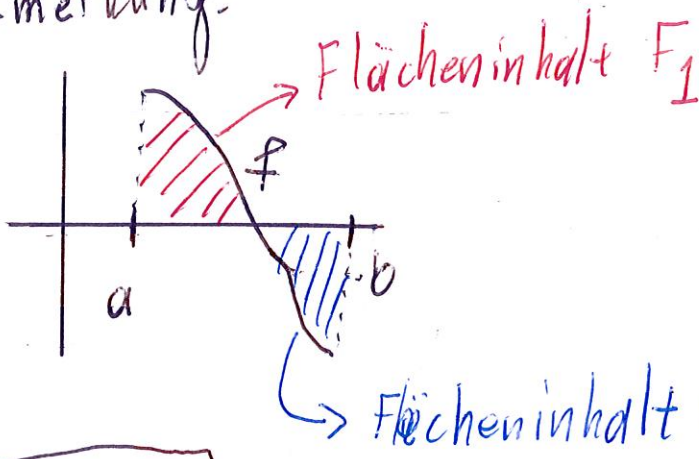 Flächeninhalt F₁
f
a
b
Flächeninhalt